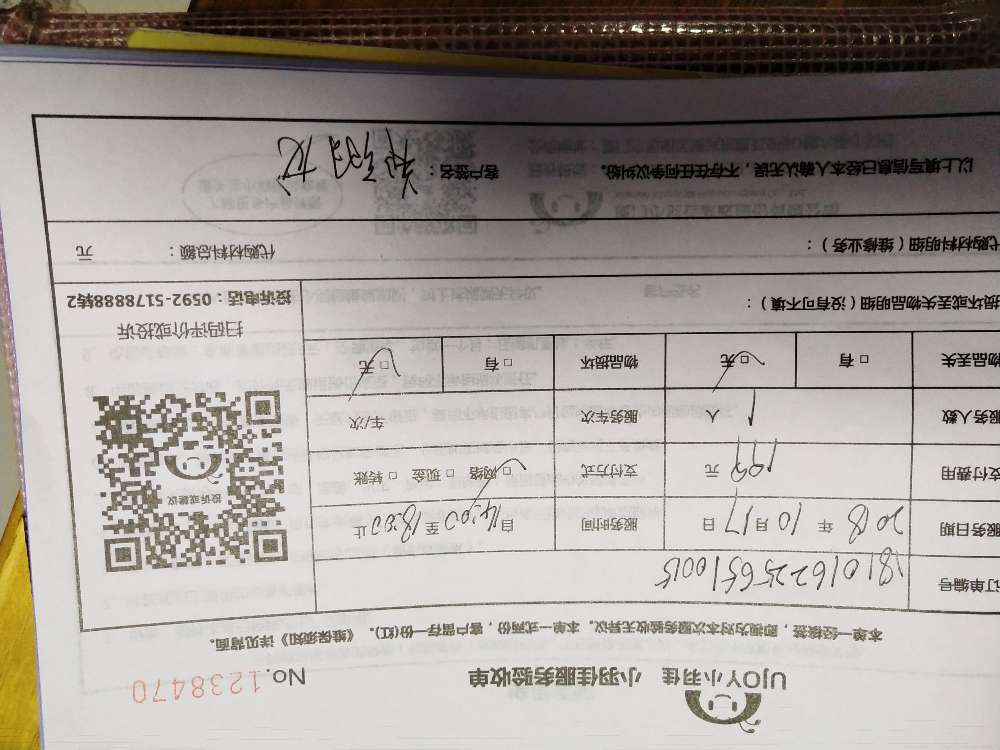 UJOY小羽佳 小羽佳服务验收单
No.1238470
本单一经核签，即视为对本次服务验收无异议。本单一式两份，客户留存一份(红)。《维保须知》详见背面。
订单编号 1810162256510015
服务日期 2018 年 10 月 17 日 服务时间 自 14:00 至 18:00 止
支付费用 199 元 支付方式 □ 网络 □ 现金 □ 转账
服务人数 1 人 服务车次 车/次
物品丢失 □ 有 □ 无 物品损坏 □ 有 □ 无
损坏或丢失物品明细（没有可不填）：
投诉或建议
扫码评价或投诉
投诉电话：0592-5178888转2
代购材料明细（维修业务）： 代购材料总额： 元
以上填写信息已经本人确认无误，不存在任何争议纠纷。 客户签名：